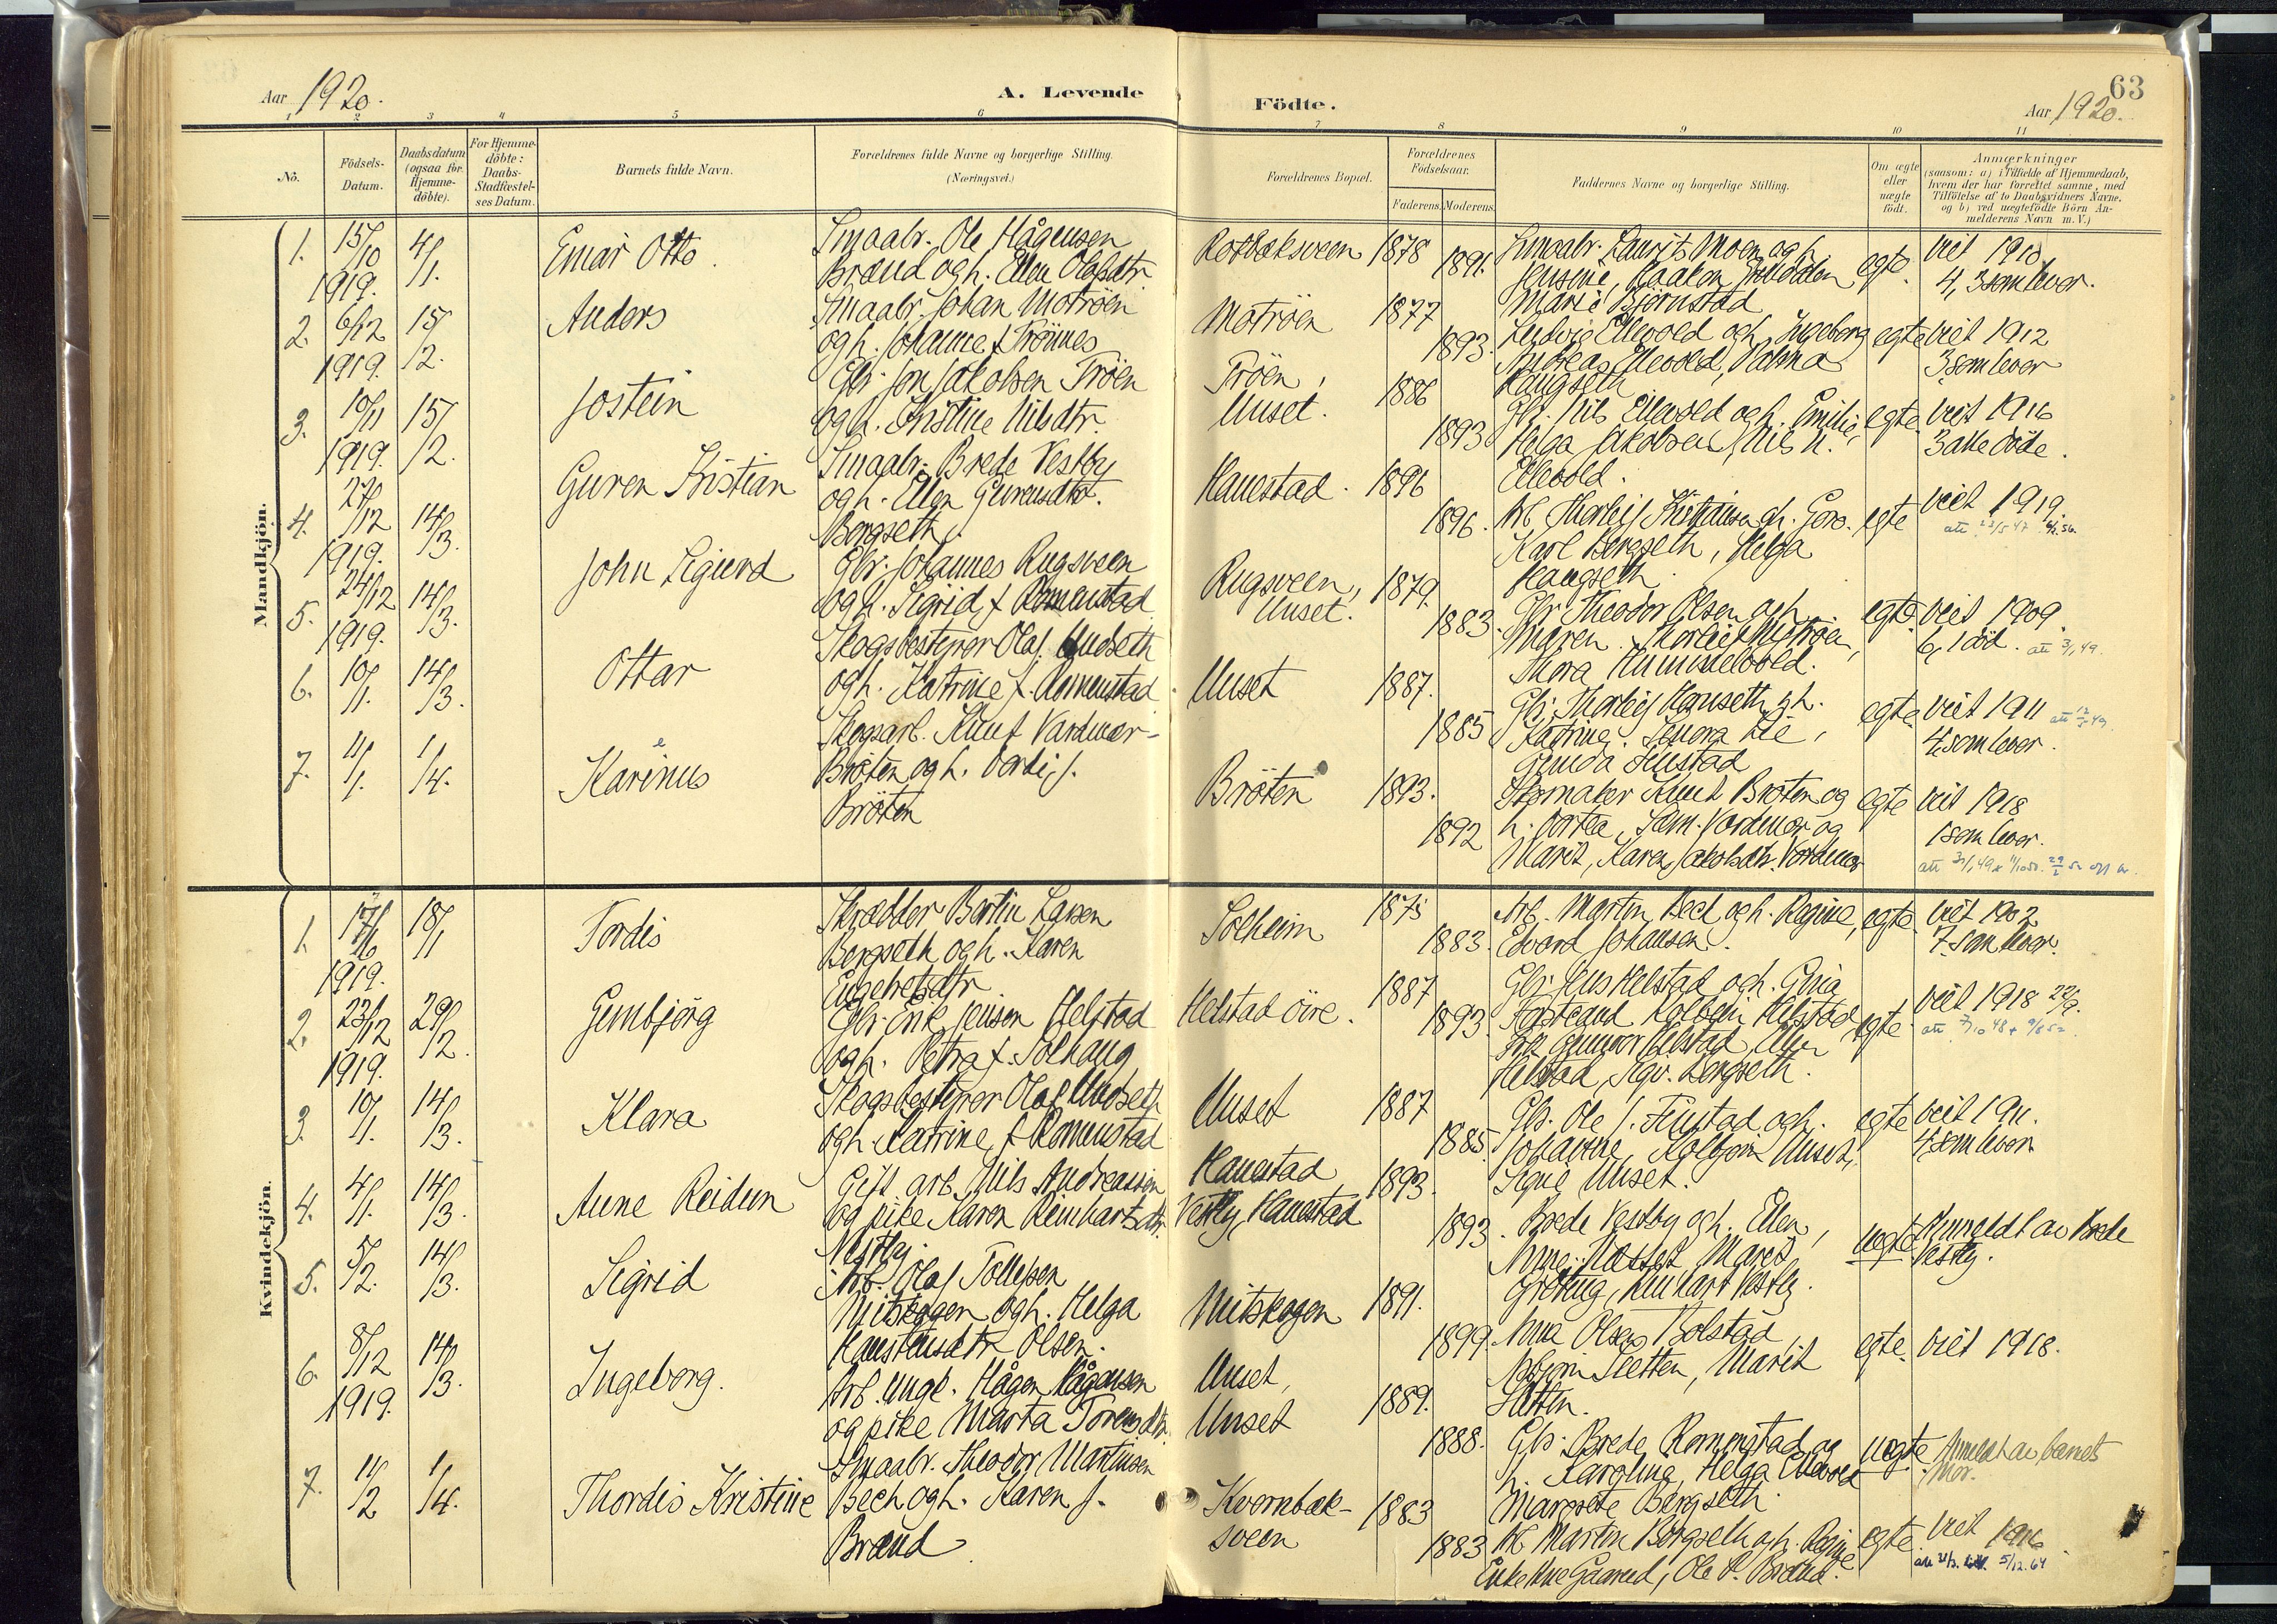 Aar 1920.
A. Levende
Födte.
Aar 1920.
63
1 2 3 4 5 6 7 8 9 10 11
Nö.
Födsels-
Datum.
Daabsdatum
(ogsaa for
Hjemme-
döbte).
For Hjemme-
döbte:
Daabs-
Stadfæstel-
ses Datum.
Barnets fulde Navn.
Forældrenes fulde Navne og borgerlige Stilling.
(Næringsvei.)
Forældrenes Bopæl.
Forældrenes
Födselsaar.
Faderens. Moderens.
Faddernes Navne og borgerlige Stilling.
Om ægte
eller
uægte
födt.
Anmærkninger
(saasom: a) i Tilfælde af Hjemmedaab,
hvem der har forrettet samme, med
Tilföielse af to Daabsvidners Navne.
og b) ved uægtefödte Börn An-
melderens Navn m. V.)
Mandkjön.
1.
15/10
1919.
4/1.
Einar Otto.
Smaabr. Ole Hågensen
Brænd og h. Ellen Olafsdtr.
1878
1891.
Smaabr. Laurits Moen og h.
Jensine, Haakon
Marie Björnstad
egte.
viet 1910
4, 3 som lever.
2.
6/12
1919.
15/2.
Anders
Smaabr. Johan Moträen
og h. Johanne f. Trönnes
Moträen
1877
1893.
Ludvig Ellevold og h. Ingeborg
Andreas Ellevold, Valma
Haugseth
egte
viet 1912
3 som lever
3.
10/11
1919.
15/2.
Jostein
Gbr. Jon Jakobsen Tröen
og h. Kristine Nilsdtr.
Tröen,
Unset.
1886
1893
Gbr. Nils Ellevold og h. Emilie,
Helga Jakobsen, Nils N.
Ellevold.
egte
viet 1916
3 alle döde.
4.
27/12
1919.
14/3.
Guren Kristian
Smaabr. Brede Vestby
og h. Ellen Gurensdtr.
Bergseth.
Hanestad.
1896
1896.
Arb. Thorleif Kristiansen og h. Goro.
Karl Bergseth, Helga
Haugseth.
egte
viet 1919.
5.
24/12
1919.
14/3.
John Sigurd
Gbr. Johannes Rugsveen
og h. Sigrid f. Romenstad
Rugsveen,
Unset.
1879.
1883.
Gbr. Theodor Olsen og h.
Maren. Thorleif
Thora Himmelvold.
egte.
viet 1909.
6, 1 död. att 3/1 49.
6.
10/1.
14/3.
Ottar
Skogsbestyrer Olaf Undseth
og h. Katrine f. Romenstad.
Unset
1887.
1885
Gbr. Thorleif Hanseth og h.
Katrine. Lenora Lie,
Gunda Finstad
egte
viet 1911
4, som lever.
7.
11/1.
1/4.
Karinus
Skogsarb. Knut Vardmor-
Bröten og h. f.
Bröten
Bröten
1893.
1892
Skomaker Knut Bröten og
h. Dortea, Sam. Vordmor og
Marit, Karen Jakobsdtr. Vordmor
egte
viet 1918
1 som lever.
Kvindekjön.
1.
1919.
18/1
Tordis
Skrædder Bertin Larsen
Bergseth og h. Karen
Engebretsdtr
Solheim
1875
1883.
Arb. Martin Beck og h. Regine,
Edvard Johansen.
egte.
viet 1902
7. som lever.
2.
23/12
1919.
29/2.
Gunbjörg
Gbr. Erik Jensen Helstad
og h. Petra f. Solhaug
Helstad öire.
1887
1893.
Gbr. Jens Helstad og h. Gina
Kolbein Helstad
Gunnor Helstad, Ellen
Helstad, Sigv. Bergseth.
egte
viet 1918
3.
10/1.
14/3.
Klara
Skogsbestyrer Olaf Undseth
og h. Katrine f. Romenstad
Unset
1887
1885.
Gbr. Ole J. Finstad og h.
Johanne, Kolbjörn Unset,
Signe Unset.
egte
viet 1911.
4, som lever.
4.
4/1.
14/3.
Anne Reidun
Gift arb. Nils Andreassen
og pike Karen Reinhartsdtr.
Vestby.
Hanestad
Vestby, Hanestad
1893.
1893.
Brede Vestby og h. Ellen,
Anne Næsset, Marit
Gröting, Reinhart Vestby.
uegte
Anmeldt av Brede
Vestby.
5.
5/2.
14/3.
Sigrid
Arb. Olaf Tollefsen
Mitskogen og h. Helga
Kaustensdtr Olsen.
Mitskogen
1891.
1899.
Anna Olsen Bolstad,
Asbjörn Sletten, Marit
Sletten.
egte.
viet 1918.
6.
8/12
1919.
14/3.
Ingeborg.
Arb. ungk. Hågen Hågensen
og pike Marta Torensdtr.
Unset,
Unset
1889.
1888.
Gbr. Brede Romenstad og
h. Karoline, Helga Ellevold
Margrete Bergseth.
uegte
Anmeldt av barnets
Mor.
7.
11/2
1/4.
Thordis Kristine
Smaabr. Theodor Martinsen
Bech og h. Karen f.
Brænd
Kvernbæk-
sveen
1883
1883
Arb. Martin Bergseth og h. Regine
Enke Ane Gaarud, Ole P. Brænd.
egte.
viet 1906.
5/12.64